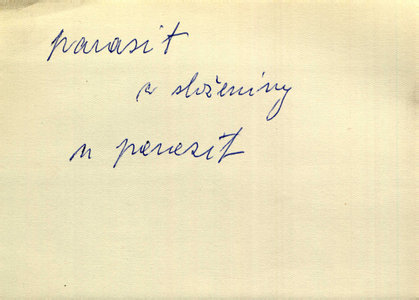 parasit
a složeniny
v parazit